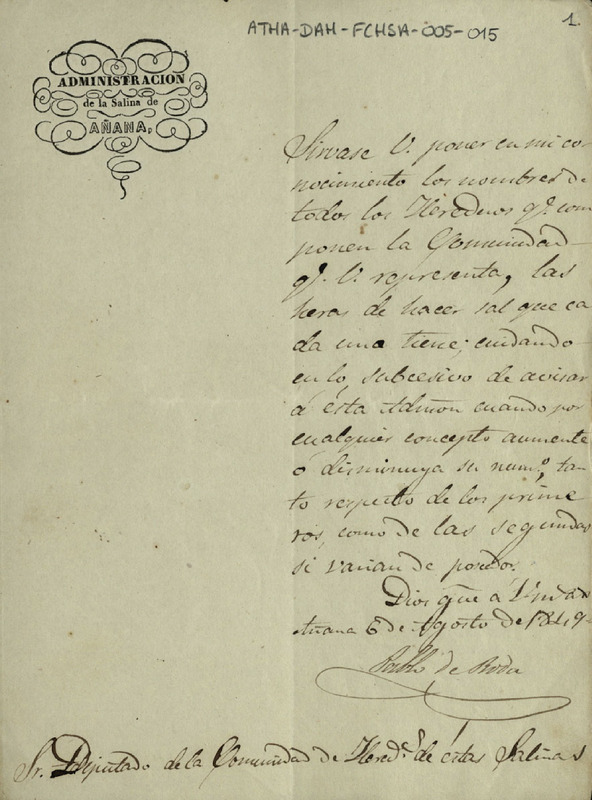 ATHA-DAH-FCHSA-005-015
1.
ADMINISTRACION
de la Salina de
AÑANA,
Sirvase V. poner en mi co
nocimiento los nombres de
todos los Herederos q.e com
ponen la Comunidad
q.e V. representa, las
heras de hacer sal que ca
da uno tiene; cuidando
en lo subcesivo de avisar
á ésta Admon cuando por
cualquier concepto aumente
ó disminuya su num.o, tan
to respecto de los prime
ros, como de las segundas
si varian de poseedor.
Dios gue á V. m.s a.s
Añana 6 de Agosto de 1849
Pablo de Roda
Sr. Diputado de la Comunidad de Hered.s de éstas Salinas